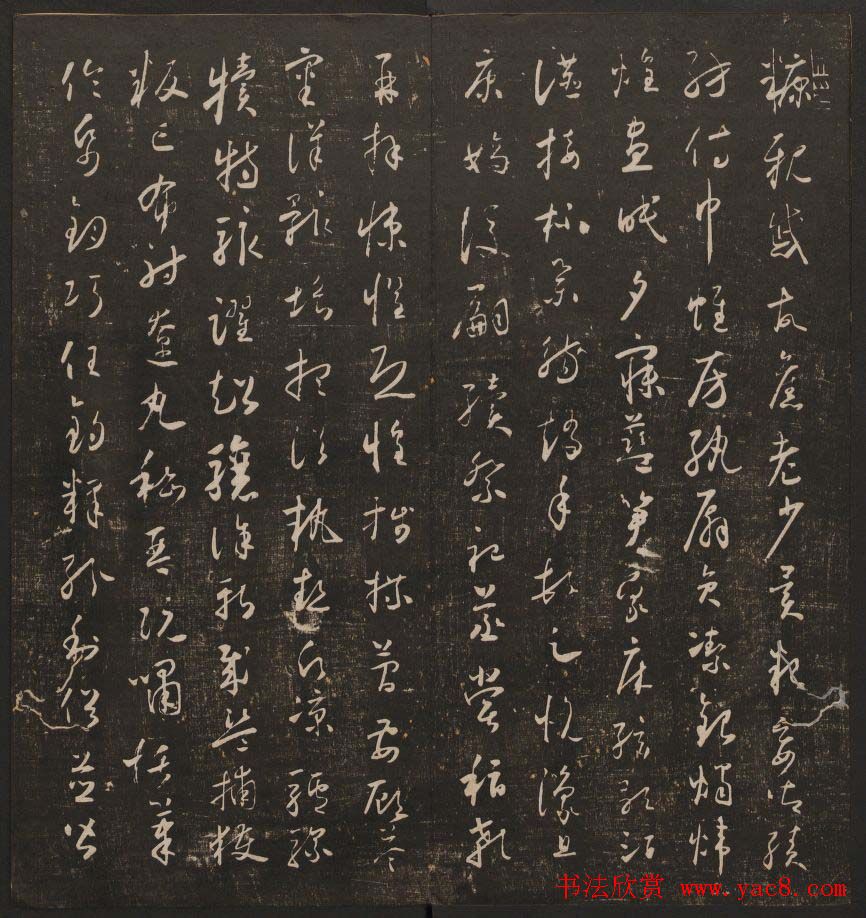 糠親戚故舊老少異粮妾御績
紡侍巾帷房紈扇員潔銀燭煒
煌晝眠夕寐藍笋象床絃歌酒
讌接杯舉觴矯手頓足悅豫且
康嫡後嗣續祭祀蒸嘗稽顙
再拜悚懼恐惶牋牒簡要顧答
審詳骸垢想浴執熱願涼驢騾
犢特駭躍超驤誅斬賊盜捕獲
叛亡布射遼丸嵇琴阮嘯恬筆
倫紙鈞巧任釣釋紛利俗並皆
书法欣赏 www.yac8.com